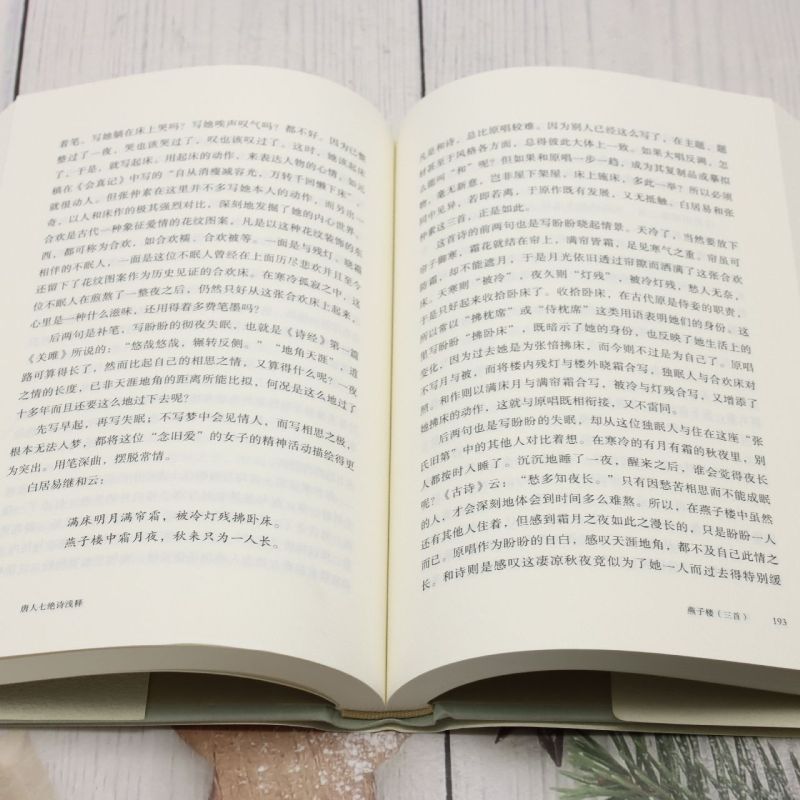 着笔。写她躺在床上哭吗？写她唉声叹气吗？都不好。因为已整
整过了一夜，哭也该哭过了，叹也该叹过了。这时，她该起床
了，于是，就写起床。用起床的动作，来表达人物的心情，如元
稹在《会真记》中写的“自从消瘦减容光，万转千回懒下床”，
就很动人。但张仲素在这里并不多写她本人的动作，而另出一
奇，以人和床作的极其强烈对比，深刻地发掘了她的内心世界。
合欢是古代一种象征爱情的花纹图案，凡是以这种花纹装饰的东
西，都可称为合欢，如合欢襦、合欢被等。一面是与残灯、晓霜
相伴的不眠人，一面是这位不眠人曾经在上面历尽悲欢并且至今
还留下了花纹图案作为历史见证的合欢床。在寒冷孤寂之中，这
位不眠人在煎熬了一整夜之后，仍然只好从这张合欢床上起来，
心里是一种什么滋味，还用得着多费笔墨吗？
后两句是补笔，写盼盼的彻夜失眠，也就是《诗经》第一篇
《关雎》所说的：“悠哉悠哉，辗转反侧。”“地角天涯”，道
路可算得长了，然而比起自己的相思之情，又算得什么呢？一夜
之情的长度，已非天涯地角的距离所能比拟，何况是这么地过了
十多年而且还要这么地过下去呢？
先写早起，再写失眠；不写梦中会见情人，而写相思之极，
根本无法入梦，都将这位“念旧爱”的女子的精神活动描绘得更
为突出。用笔深曲，摆脱常情。
白居易继和云：
满床明月满帘霜，被冷灯残拂卧床。
燕子楼中霜月夜，秋来只为一人长。
唐人七绝诗浅释
凡是和诗，总比原唱较难。因为别人已经这么写了，在主题、题
材甚至于风格各方面，总得彼此大体上一致。如果大唱反调，怎
么能叫“和”呢？但如果和原唱一步一趋，成为其复制品或摹拟
物，毫无新意，岂非屋下架屋，床上施床，多此一举？所以必须
同中见异，若即若离，于原作既有发展，又无抵触。白居易和张
仲素这三首，正是如此。
这首诗的前两句也是写盼盼晓起情景。天冷了，当然要放下
帘子御寒，霜花就结在帘上，满帘皆霜，足见寒气之重。帘虽可
防霜，却不能遮月，于是月光依旧透过帘隙而洒满了这张合欢
床。天寒则“被冷”，夜久则“灯残”，被冷灯残，愁人无奈，
于是只好起来收拾卧床了。收拾卧床，在古代原是侍妾的职责，
所以常以“拂枕席”或“侍枕席”这类用语表明她们的身份。这
里写盼盼“拂卧床”，既暗示了她的身份，也反映了她生活上的
变化，因为过去她是为张愔拂床，而今则不过是为自己了。原唱
不写月与被，而将楼内残灯与楼外晓霜合写，独眠人与合欢床对
照。和作则以满床月与满帘霜合写，被冷与灯残合写，又增添了
她拂床的动作，这就与原唱既相衔接，又不雷同。
后两句也是写盼盼的失眠，却从这位独眠人与住在这座“张
氏旧第”中的其他人对比着想。在寒冷的有月有霜的秋夜里，别
人都按时入睡了。沉沉地睡了一夜，醒来之后，谁会觉得夜长
呢？《古诗》云：“愁多知夜长。”只有因愁苦相思而不能成眠
的人，才会深刻地体会到时间多么难熬。所以，在燕子楼中虽然
还有其他人住着，但感到霜月之夜如此之漫长的，只是盼盼一人
而已。原唱作为盼盼的自白，感叹天涯地角，都不及自己此情之
长。和诗则是感叹这凄凉秋夜竟似为了她一人而过去得特别缓
燕子楼（三首） 193